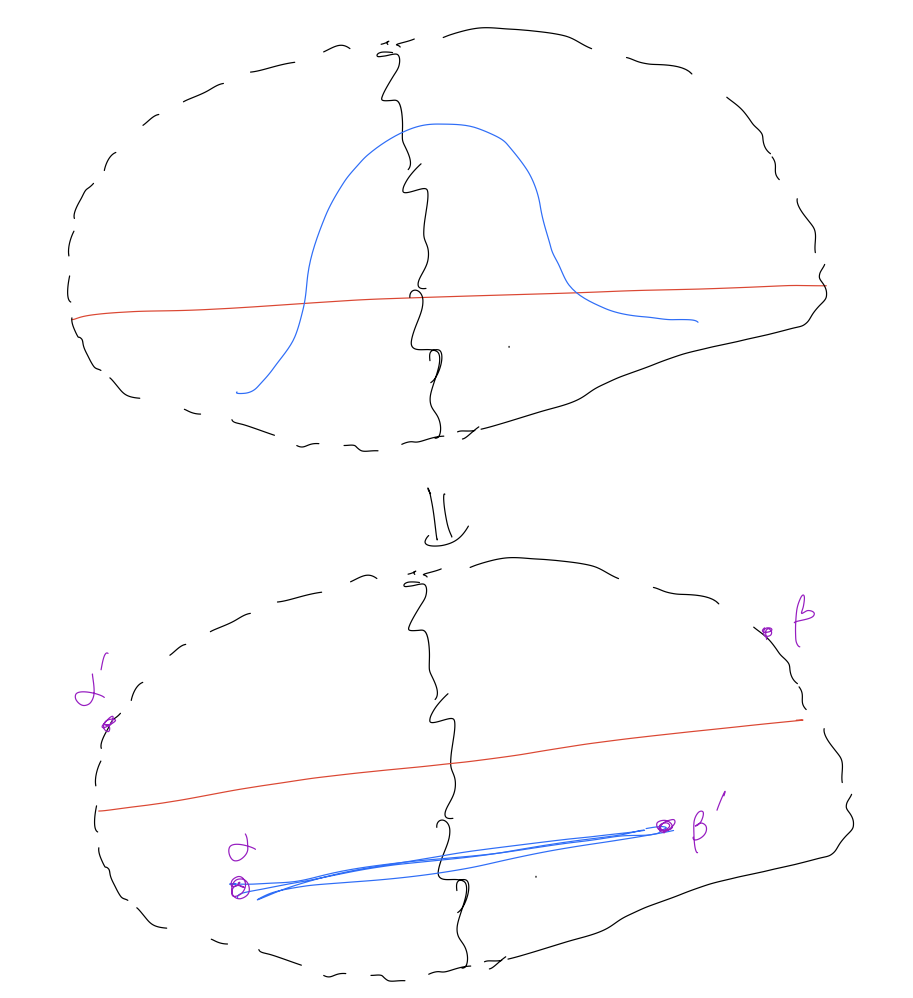 β
α′
α
β′